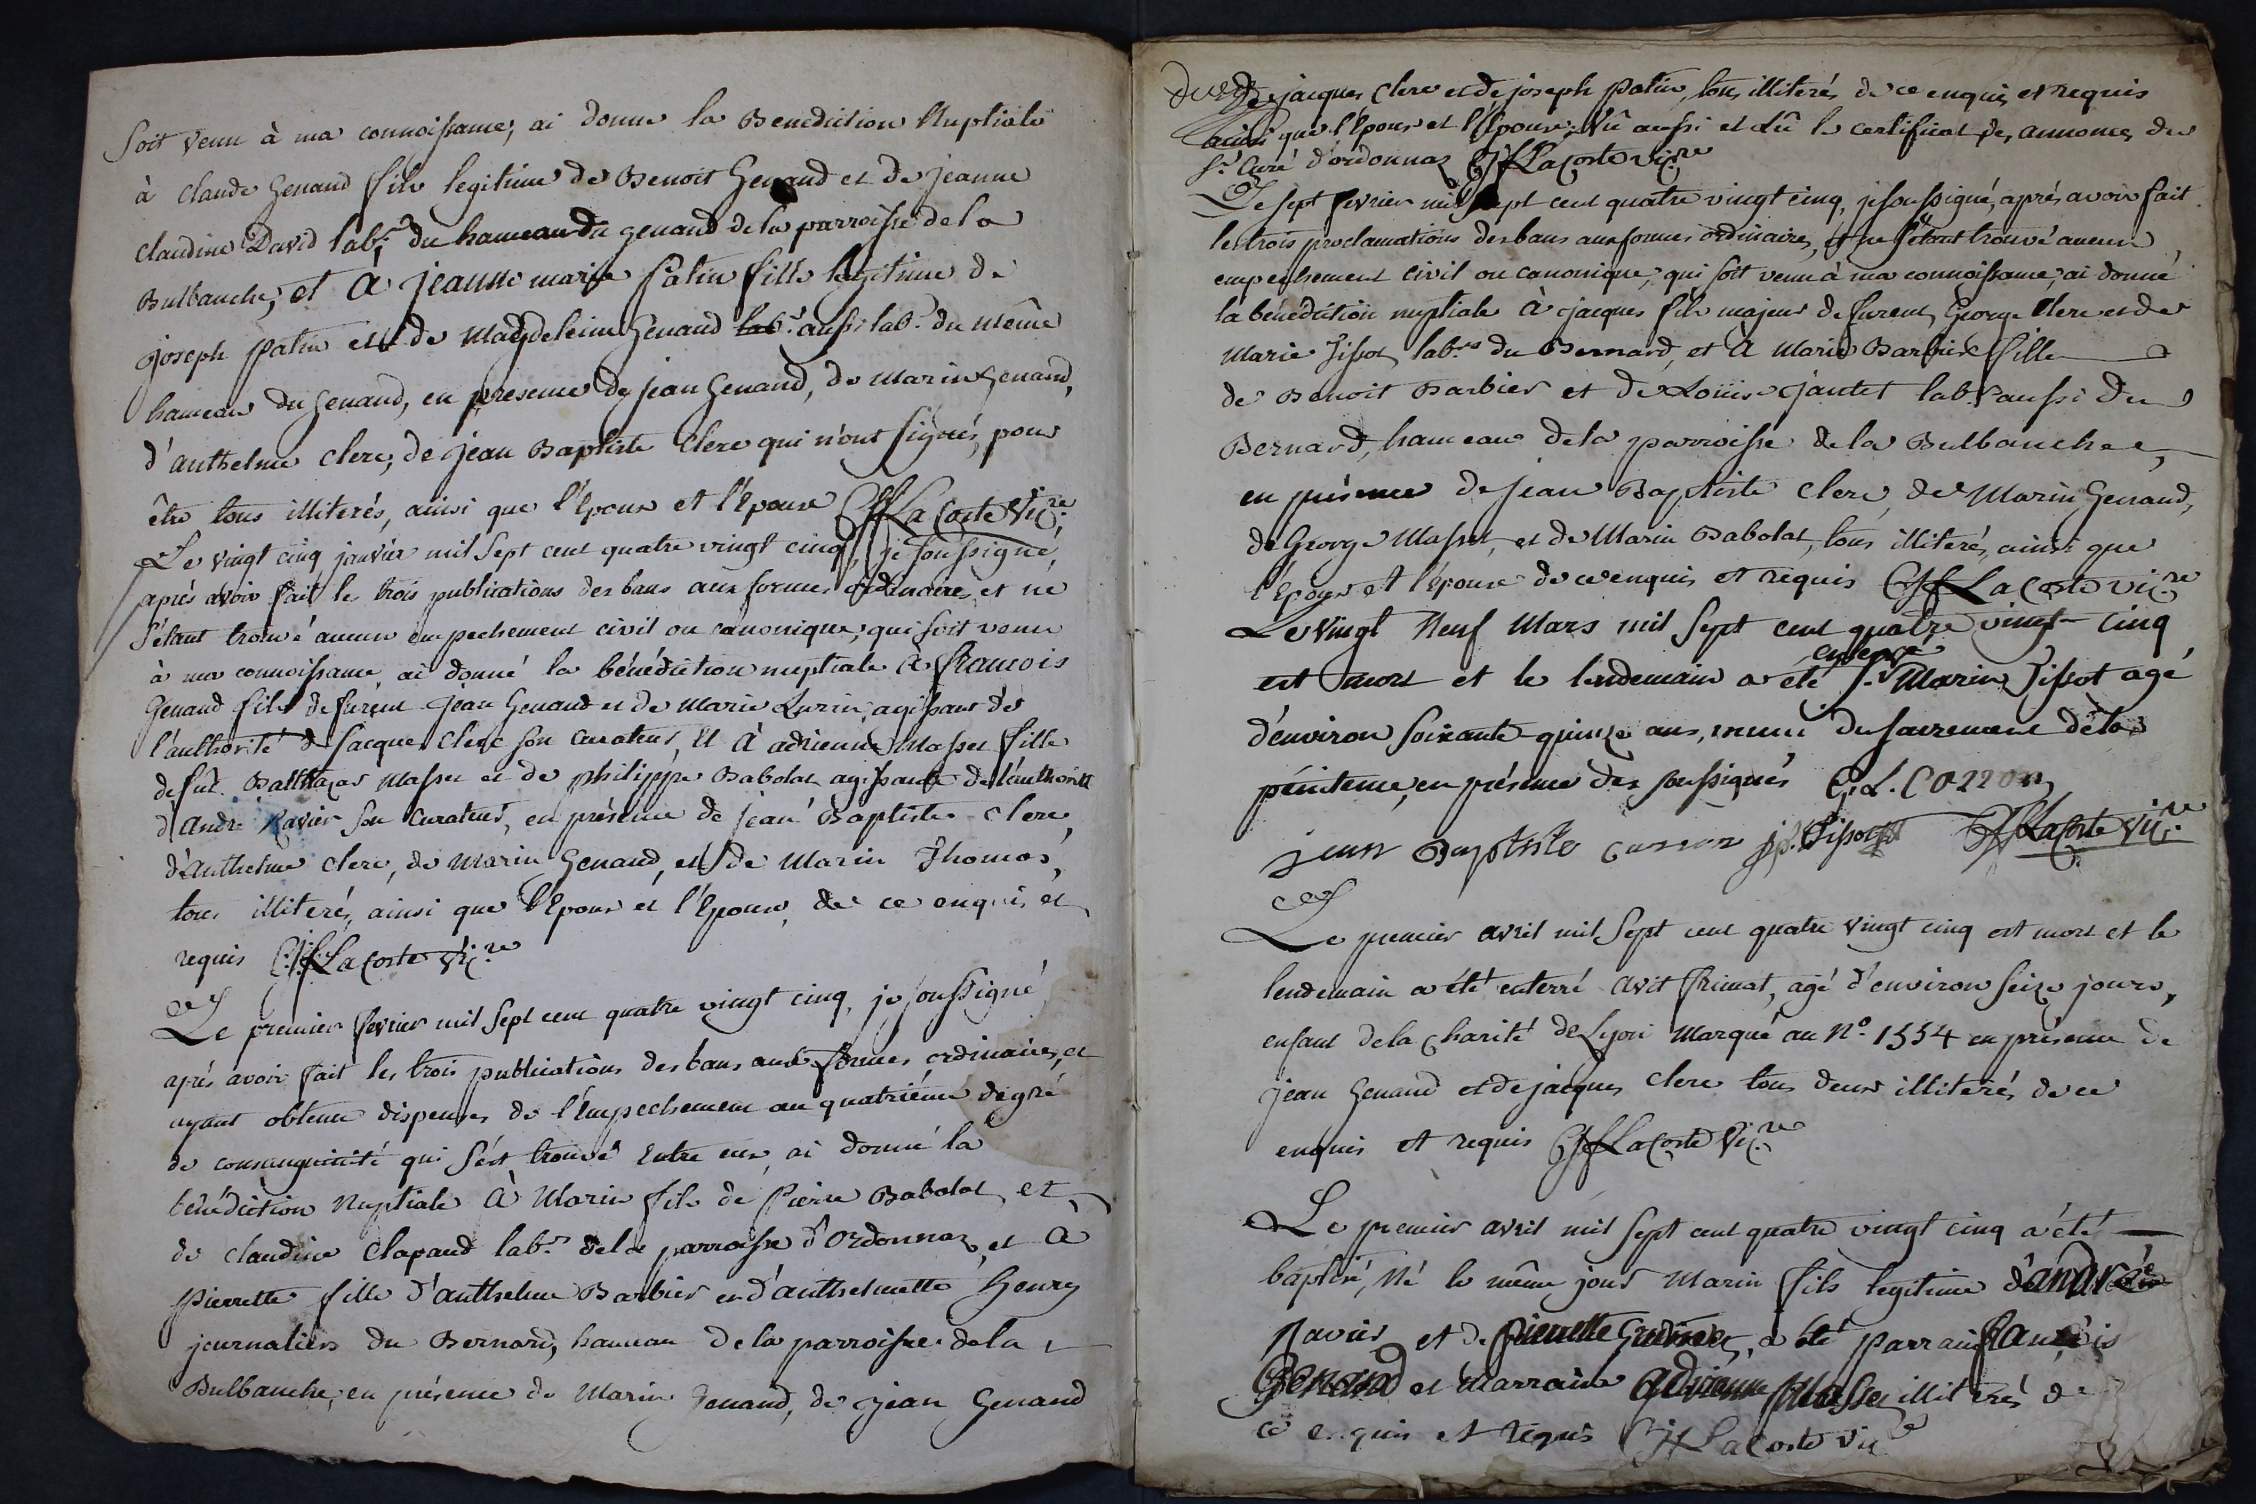 soit venu à ma connoissance, ai donné la Benediction Nuptiale
à claude Genand fils legitime de Benoit Genand et de jeanne
claudine David lab.rs du hameau du genand de la parroisse de la
Bulbanche, et à jeanne marie Patin fille legitime de
joseph patin et de Magdeleine Genand lab.rs aussi lab.rs du même
hameau du Genand, en presence de jean Genand, de marin Genand,
d'anthelme clerc, de jean Baptiste clerc qui n'ont signés, pour
être tous illiterés, ainsi que l'Epoux et l'Epouse LaCoste vic.re
Le vingt cinq janvier mil sept cent quatre vingt cinq, je soussigné,
après avoir fait les trois publications des bans aux formes ordinaires, et ne
s'étant trouvé aucun empechement civil ou canonique, qui soit venu
à ma connoissance, ai donné la bénédiction nuptiale à francois
Genand fils de furent jean Genand et de Marie Lurin, agissant de
l'authorité de jacques clerc son curateur, et à adrienne Masset fille
de fût Balthazar Masset et de philippe Babolat agissante de l'authorité
d'andré Ravier son curateur, en présence de jean Baptiste clerc,
d'anthelme clerc, de marin Genand, et de marin Thomas,
tous illiterés, ainsi que l'Epoux et l'Epouse, de ce enquis et
requis LaCoste vic.re
Le premier fevrier mil sept cent quatre vingt cinq, je soussigné
après avoir fait les trois publications des bans aux formes ordinaires, et
ayant obtenu dispenses de l'Empechement au quatrième dégré
de consanguinité qui s'est trouvé entre eux, ai donné la
bénédiction Nuptiale à Marin fils de Pierre Babolat, et
de claudine Clapaud lab.rs de la parroisse d'Ordonnaz, et à
Pierrette fille d'anthelme Barbier et d'anthelmette Henry
journaliers du Bernard, hameau de la parroisse de la
Bulbanche, en présence de Marin Genand, de jean Genand
de jacques Clerc et de joseph patin, tous illiterés de ce enquis et requis
ainsi que l'Epoux et l'Epouse. Vû aussi et lû le certificat des annonces du
s.r Curé d'ordonnaz LaCoste vic.re
Le sept fevrier mil sept cent quatre vingt cinq, je soussigné, après avoir fait
les trois proclamations des bans aux formes ordinaires, et ne s'étant trouvé aucun
empechement civil ou canonique, qui soit venu à ma connoissance, ai donné
la bénédiction nuptiale à jacques fils majeur de furent George Clerc et de
Marie Tissot, lab.rs du Bernard, et à Marie Barbier fille
de Benoit Barbier et de Louise jantet lab.rs aussi du
Bernard, hameau de la parroisse de la Bulbanche,
en présence de jean Baptiste clerc, de Marin Genand,
de George Masset, et de Marin Babolat, tous illiterés, ainsi que
l'Epoux et l'épouse de ce enquis et requis LaCoste vic.re
Le vingt Neuf Mars mil sept cent quatre vingt cinq
est mort et le lendemain a été enterré s.r Marin Tissot agé
d'environ soixante quinze ans, muni du sacrement de la
pénitence, en présence des soussignés C. L. Cozzon
jean Baptiste cusson jp. Tissot LaCoste vic.re
Le premier avril mil sept cent quatre vingt cinq est mort et le
lendemain a été enterré avit frimat, agé d'environ seize jours,
enfant de la Charité de Lyon Marqué au N.o 1554 en présence de
jean Genand et de jacques Clerc tous deux illiterés de ce
enquis et requis LaCoste vic.re
Le premier avril mil sept cent quatre vingt cinq a été
baptisé, Né le même jour Marin fils legitime d'andré
Ravier et de pierrette, a été parrain francois
Genand et Marraine adrienne Masset illiterés de
ce enquis et requis LaCoste vic.re